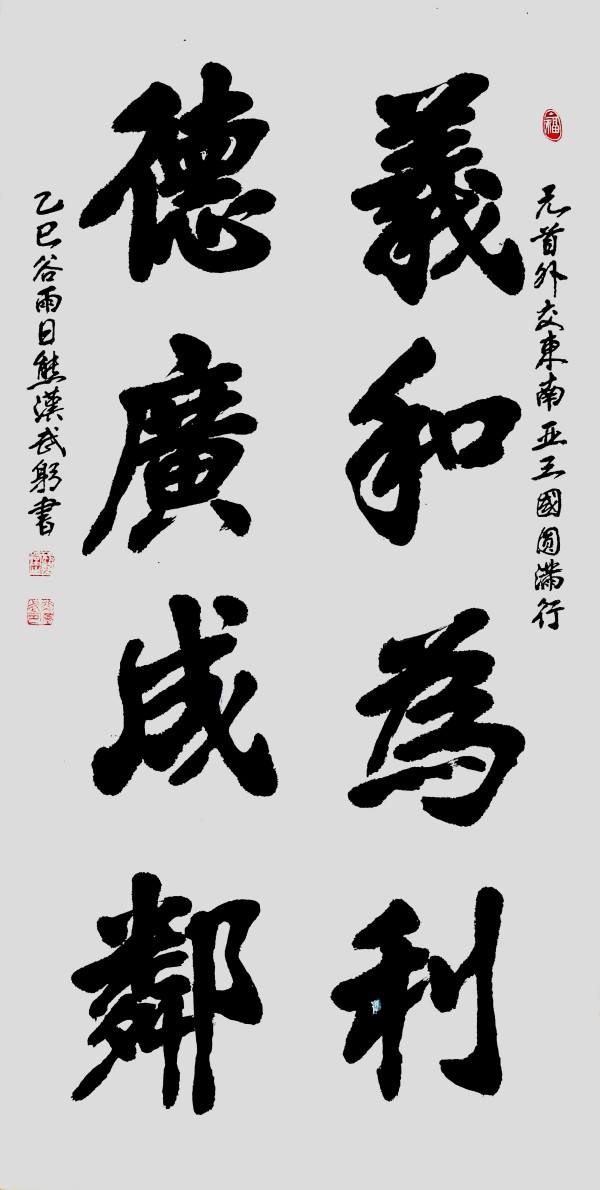 福
元首外交東南亚三國圆满行
義和為利
德廣成鄰
乙巳谷雨日熊漢武躬書